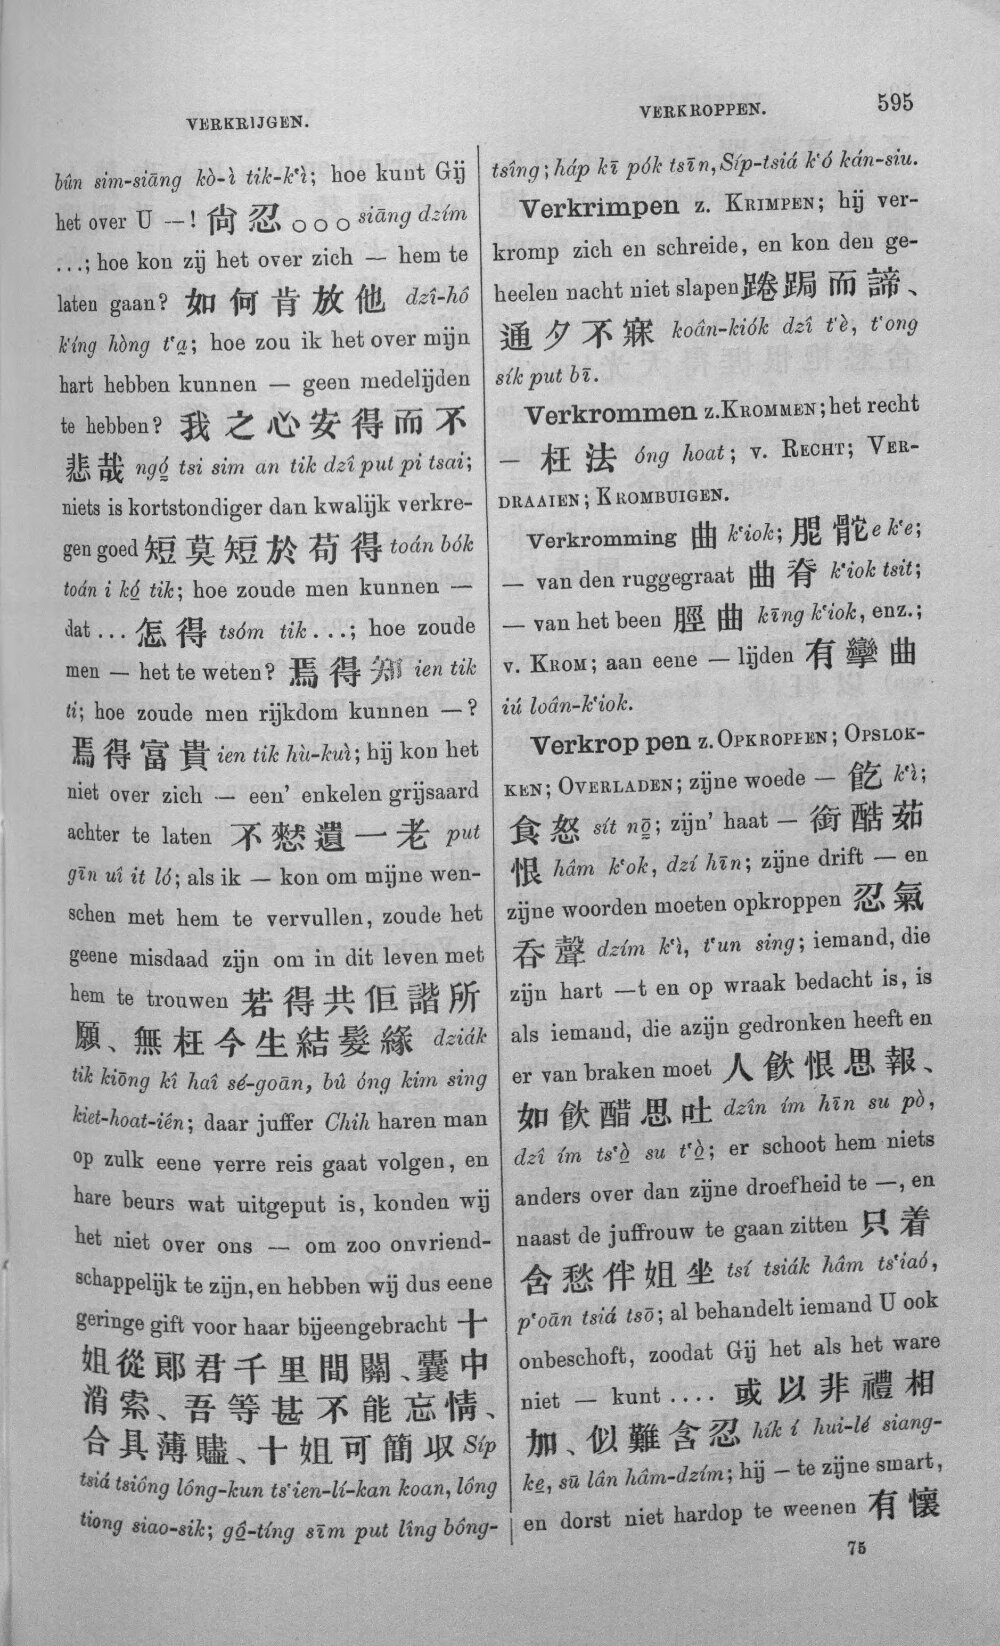 VERKRIJGEN.
bûn sim-siāng kò-ì tik-k‘ì; hoe kunt Gij
het over U —! 尙忍○○○ siāng dzím
...; hoe kon zij het over zich — hem te
laten gaan? 如何肯放他 dzî-hô
k‘íng hòng t‘a; hoe zou ik het over mijn
hart hebben kunnen — geen medelijden
te hebben? 我之心安得而不
悲哉 ngó tsi sim an tik dzî put pi tsai;
niets is kortstondiger dan kwalijk verkre-
gen goed 短莫短於苟得 toán bók
toán i kó tik; hoe zoude men kunnen —
dat... 怎得 tsóm tik...; hoe zoude
men — het te weten? 焉得知 ien tik
ti; hoe zoude men rijkdom kunnen —?
焉得富貴 ien tik hù-kuì; hij kon het
niet over zich — een' enkelen grijsaard
achter te laten 不憖遺一老 put
gīn uî it ló; als ik — kon om mijne wen-
schen met hem te vervullen, zoude het
geene misdaad zijn om in dit leven met
hem te trouwen 若得共佢諧所
願、無枉今生結髮緣 dziák
tik kiōng kî haî sé-goān, bû óng kim sing
kiet-hoat-iên; daar juffer Chih haren man
op zulk eene verre reis gaat volgen, en
hare beurs wat uitgeput is, konden wij
het niet over ons — om zoo onvriend-
schappelijk te zijn, en hebben wij dus eene
geringe gift voor haar bijeengebracht 十
姐從郞君千里間關、囊中
消索、吾等甚不能忘情、
合具薄贐、十姐可簡収 Síp
tsiá tsiông lông-kun ts‘ien-lí-kan koan, lông
tiong siao-sik; gô-tíng sīm put lîng bông-
VERKROPPEN.
595
tsîng; háp kī pók tsīn, Síp-tsiá k‘ó kán-siu.
Verkrimpen z. KRIMPEN; hij ver-
kromp zich en schreide, en kon den ge-
heelen nacht niet slapen 踡跼而諦、
通夕不寐 koân-kiók dzî t‘è, t‘ong
sík put bī.
Verkrommen z. KROMMEN; het recht
— 枉法 óng hoat; v. RECHT; VER-
DRAAIEN; KROMBUIGEN.
Verkromming 曲 k‘iok; e k‘e;
— van den ruggegraat 曲脊 k‘iok tsit;
— van het been 脛曲 kīng k‘iok, enz.;
v. KROM; aan eene — lijden 有攣曲
iú loân-k‘iok.
Verkrop pen z. OPKROPPEN; OPSLOK-
KEN; OVERLADEN; zijne woede — 飢 k‘ì;
食怒 sít nō; zijn' haat — 銜酷茹
恨 hâm k‘ok, dzí hīn; zijne drift — en
zijne woorden moeten opkroppen 忍氣
吞聲 dzím k‘ì, t‘un sing; iemand, die
zijn hart —t en op wraak bedacht is, is
als iemand, die azijn gedronken heeft en
er van braken moet 人飮恨思報、
如飮醋思吐 dzîn ím hīn su pò,
dzî ím ts‘ò su t‘ò; er schoot hem niets
anders over dan zijne droefheid te —, en
naast de juffrouw te gaan zitten 只着
含愁伴姐坐 tsí tsiák hâm ts‘iaó,
p‘oān tsiá tsō; al behandelt iemand U ook
onbeschoft, zoodat Gij het als het ware
niet — kunt.... 或以非禮相
加、似難含忍 hík í hui-lé siang-
ke, sū lân hâm-dzím; hij — te zijne smart,
en dorst niet hardop te weenen 有懷
75